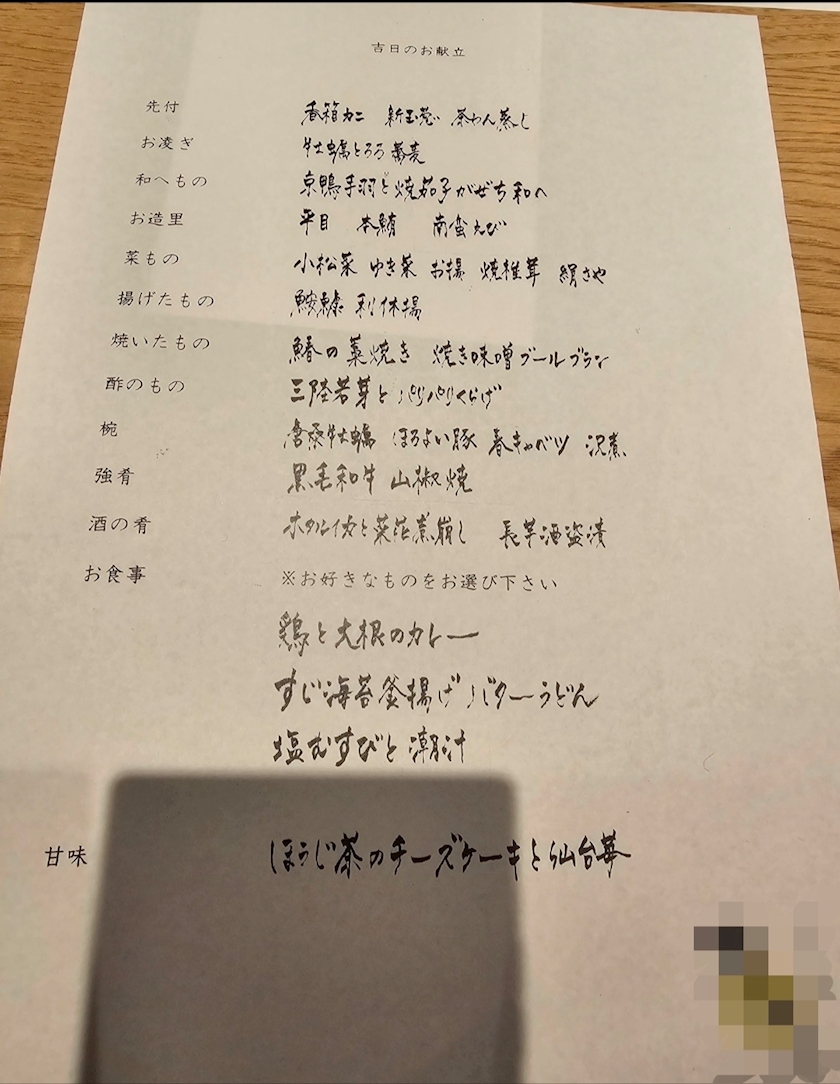 吉日のお献立
先付 香箱カニ 新玉葱 茶わん蒸し
お凌ぎ 牡蠣とろろ蕎麦
和へもの 京鴨手羽と焼茄子がぜち和へ
お造里 平目 本鮪 南蛮えび
菜もの 小松菜 ゆき菜 お揚 焼椎茸 絹さや
揚げたもの 鮟鱇 利休揚
焼いたもの 鰆の藁焼き 焼き味噌ブールブラン
酢のもの 三陸若芽とパリパリくらげ
椀 唐桑牡蠣 ほろよい豚 春キャベツ 沢煮
強肴 黒毛和牛 山椒焼
酒の肴 ホタルイカと菜花煮崩し 長芋酒盗漬
お食事 ※お好きなものをお選び下さい
鶏と大根のカレー
すじ海苔釜揚げバターうどん
塩むすびと潮汁
甘味 ほうじ茶のチーズケーキと仙台苺